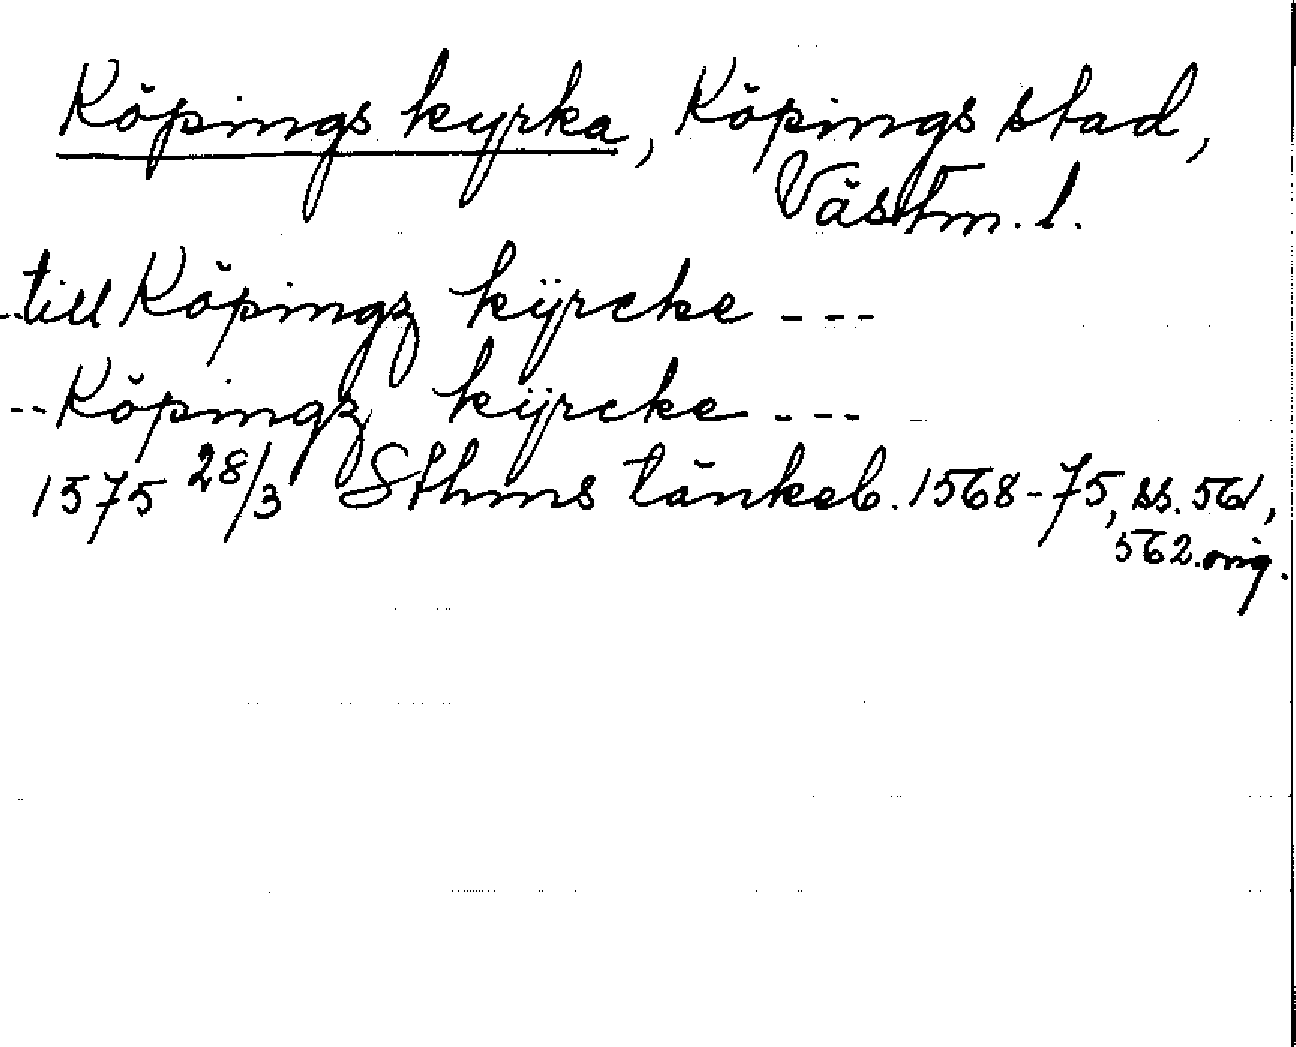 Köpings kyrka, Köpings stad,
Västm. l.
- till Köpingz kÿrcke - - -
- - Köpingz kÿrcke - - -
1575 28/3 Sthms tänkeb. 1568-75, ss. 561,
562. orig.